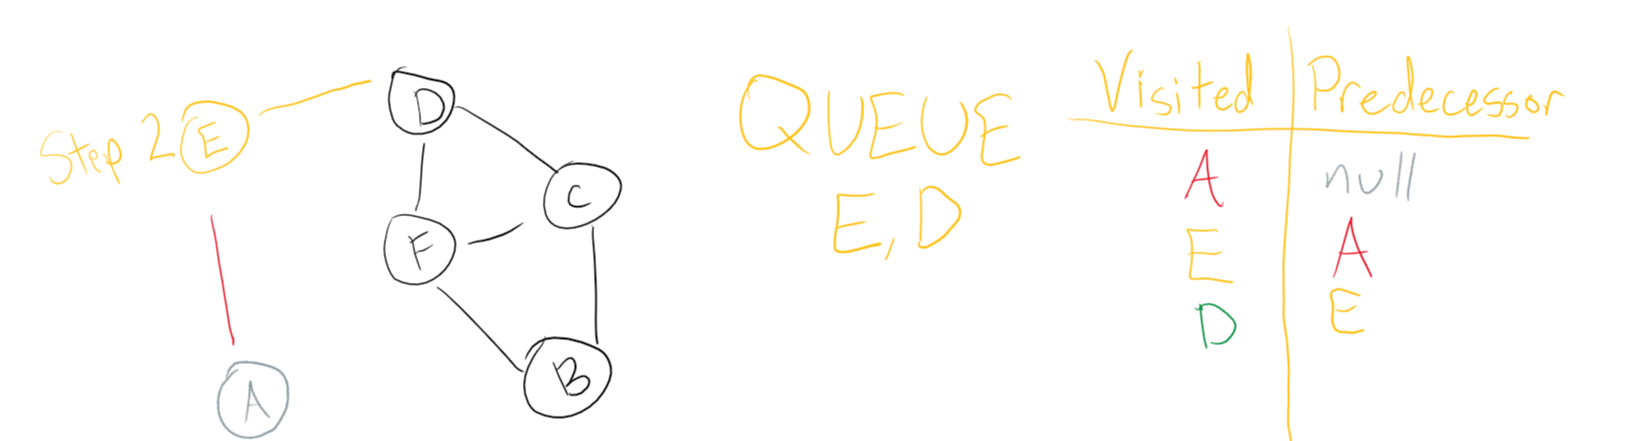 Step 2 E
D
C
F
B
A
QUEUE
E, D
Visited Predecessor
A null
E A
D E